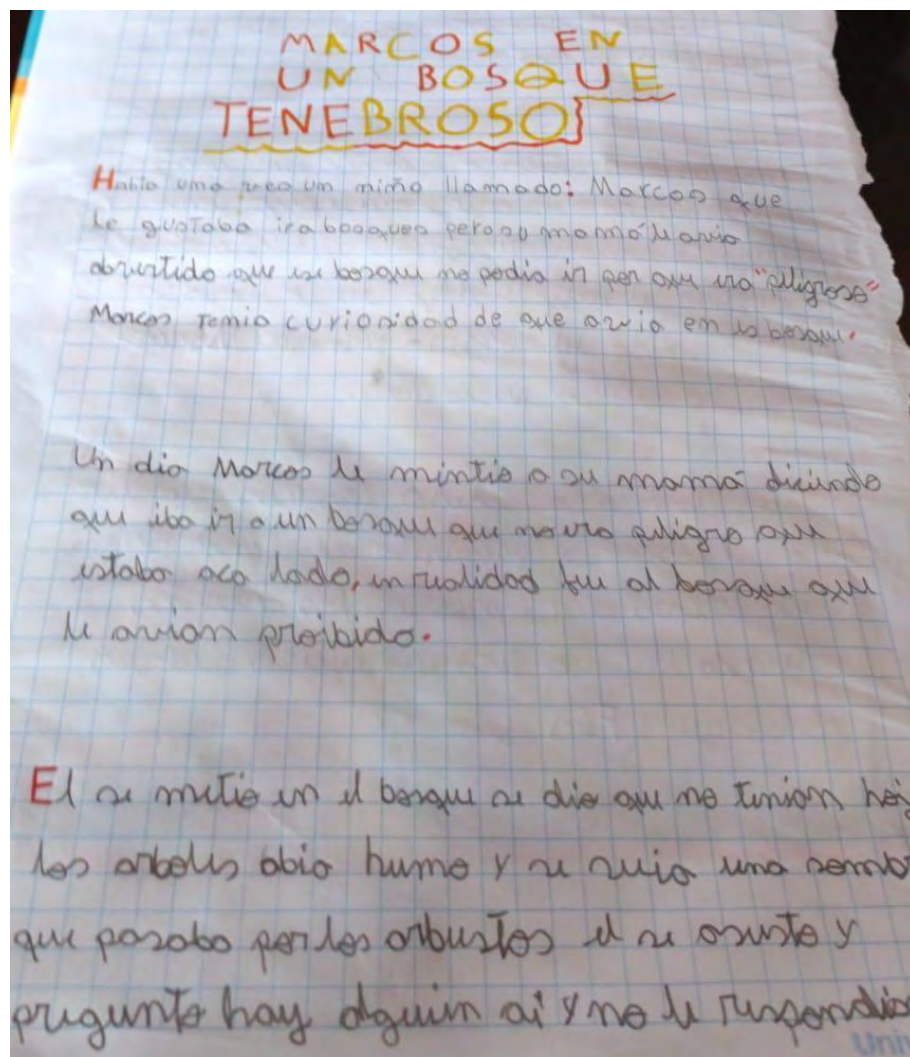 MARCOS EN
UN BOSQUE
TENEBROSO
Habia una vez un niño llamado: Marcos que
le gustaba ir a bosques pero su mamá le avia
abvertido que ese bosque no podia ir por que era "peligroso"
Marcos tenia curiosidad de que avia en es bosque.
Un dia Marcos le mintio a su mamá diciendo
que iba ir a un bosque que no era peligro que
estaba aca lado, en realidad fue al bosque que
le avian proibido.
El se metio en el bosque se dio que no tenian
los arboles abia humo y se veia una
que pasaba por los arbustos el se asusto y
pregunto hay alguien ai y no le respondio
Univ